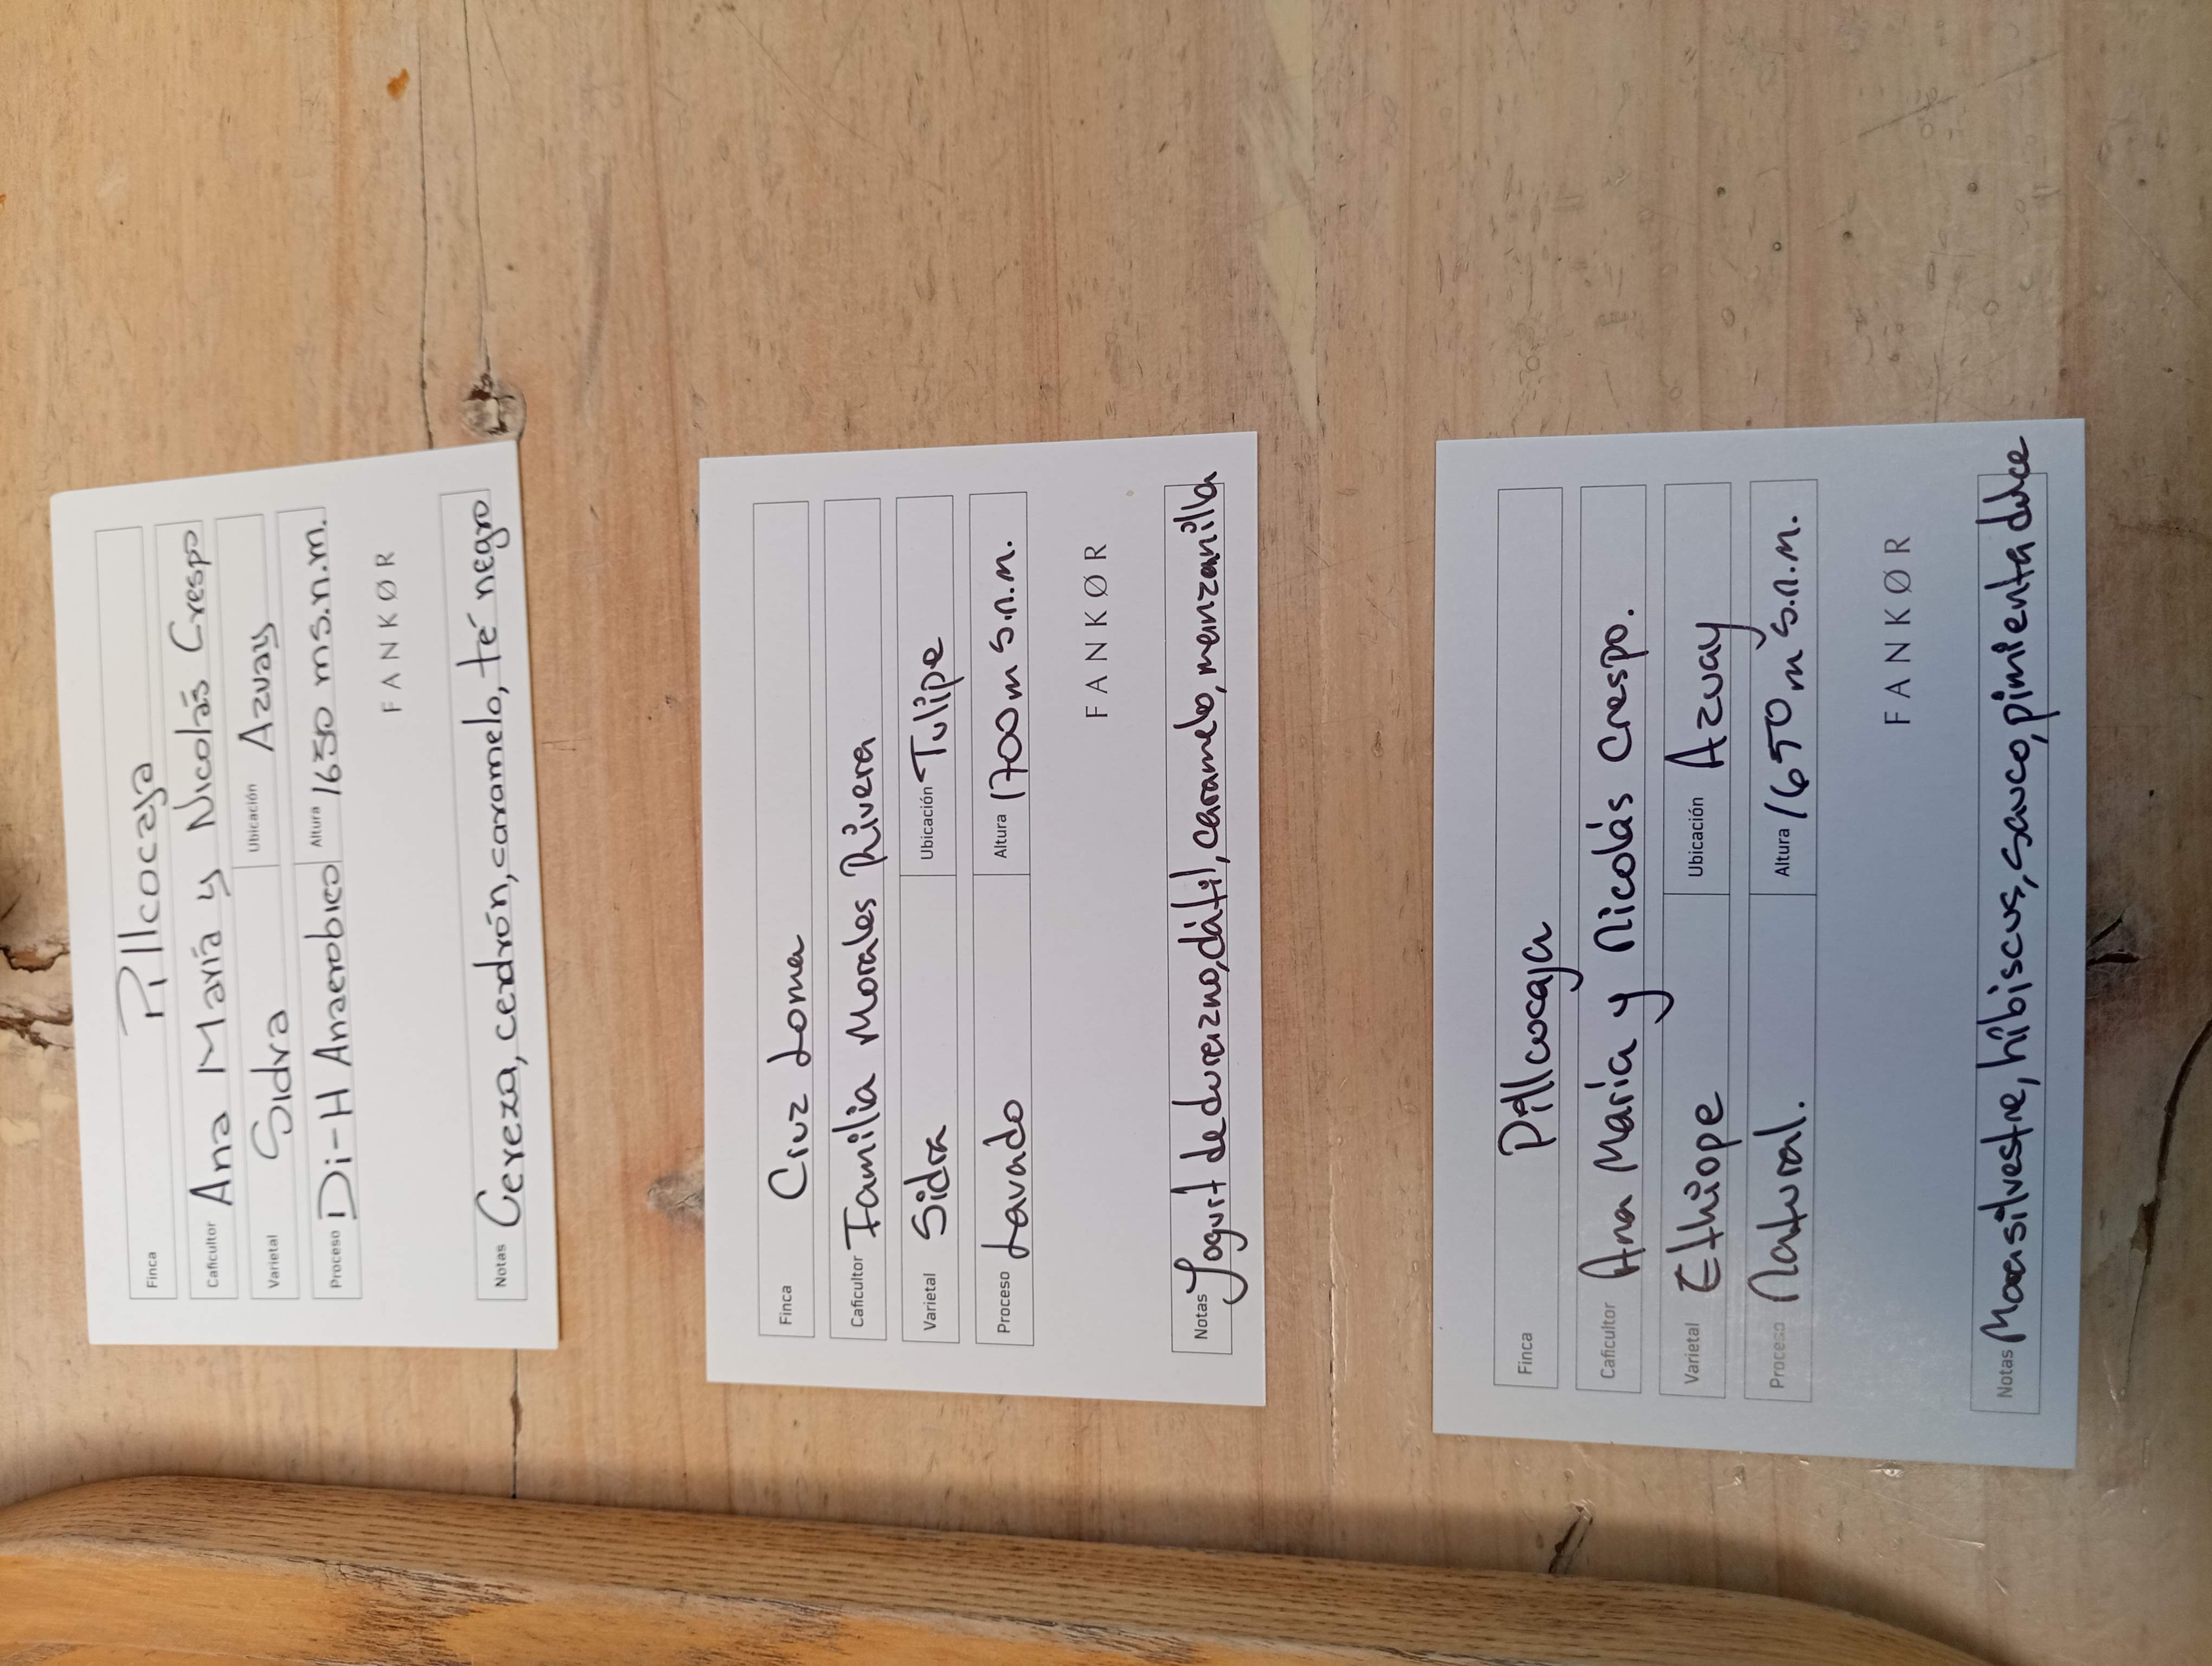 Finca Pillcocaja
Caficultor Ana María y Nicolás Crespo
Varietal Sidra Ubicación Azuay
Proceso Di-H Anaerobico Altura 1650 m s.n.m.
FANKØR
Notas Cereza, cedrón, caramelo, té negro
Finca Cruz Loma
Caficultor Familia Morales Rivera
Varietal Sidra Ubicación Tulipe
Proceso Lavado Altura 1700 m s.n.m.
FANKØR
Notas Yogurt de durazno, dátil, caramelo, manzanilla
Finca Pillcocaja
Caficultor Ana María y Nicolás Crespo.
Varietal Ethiope Ubicación Azuay
Proceso Natural. Altura 1650 m s.n.m.
FANKØR
Notas Mora silvestre, hibiscus, sauco, pimienta dulce